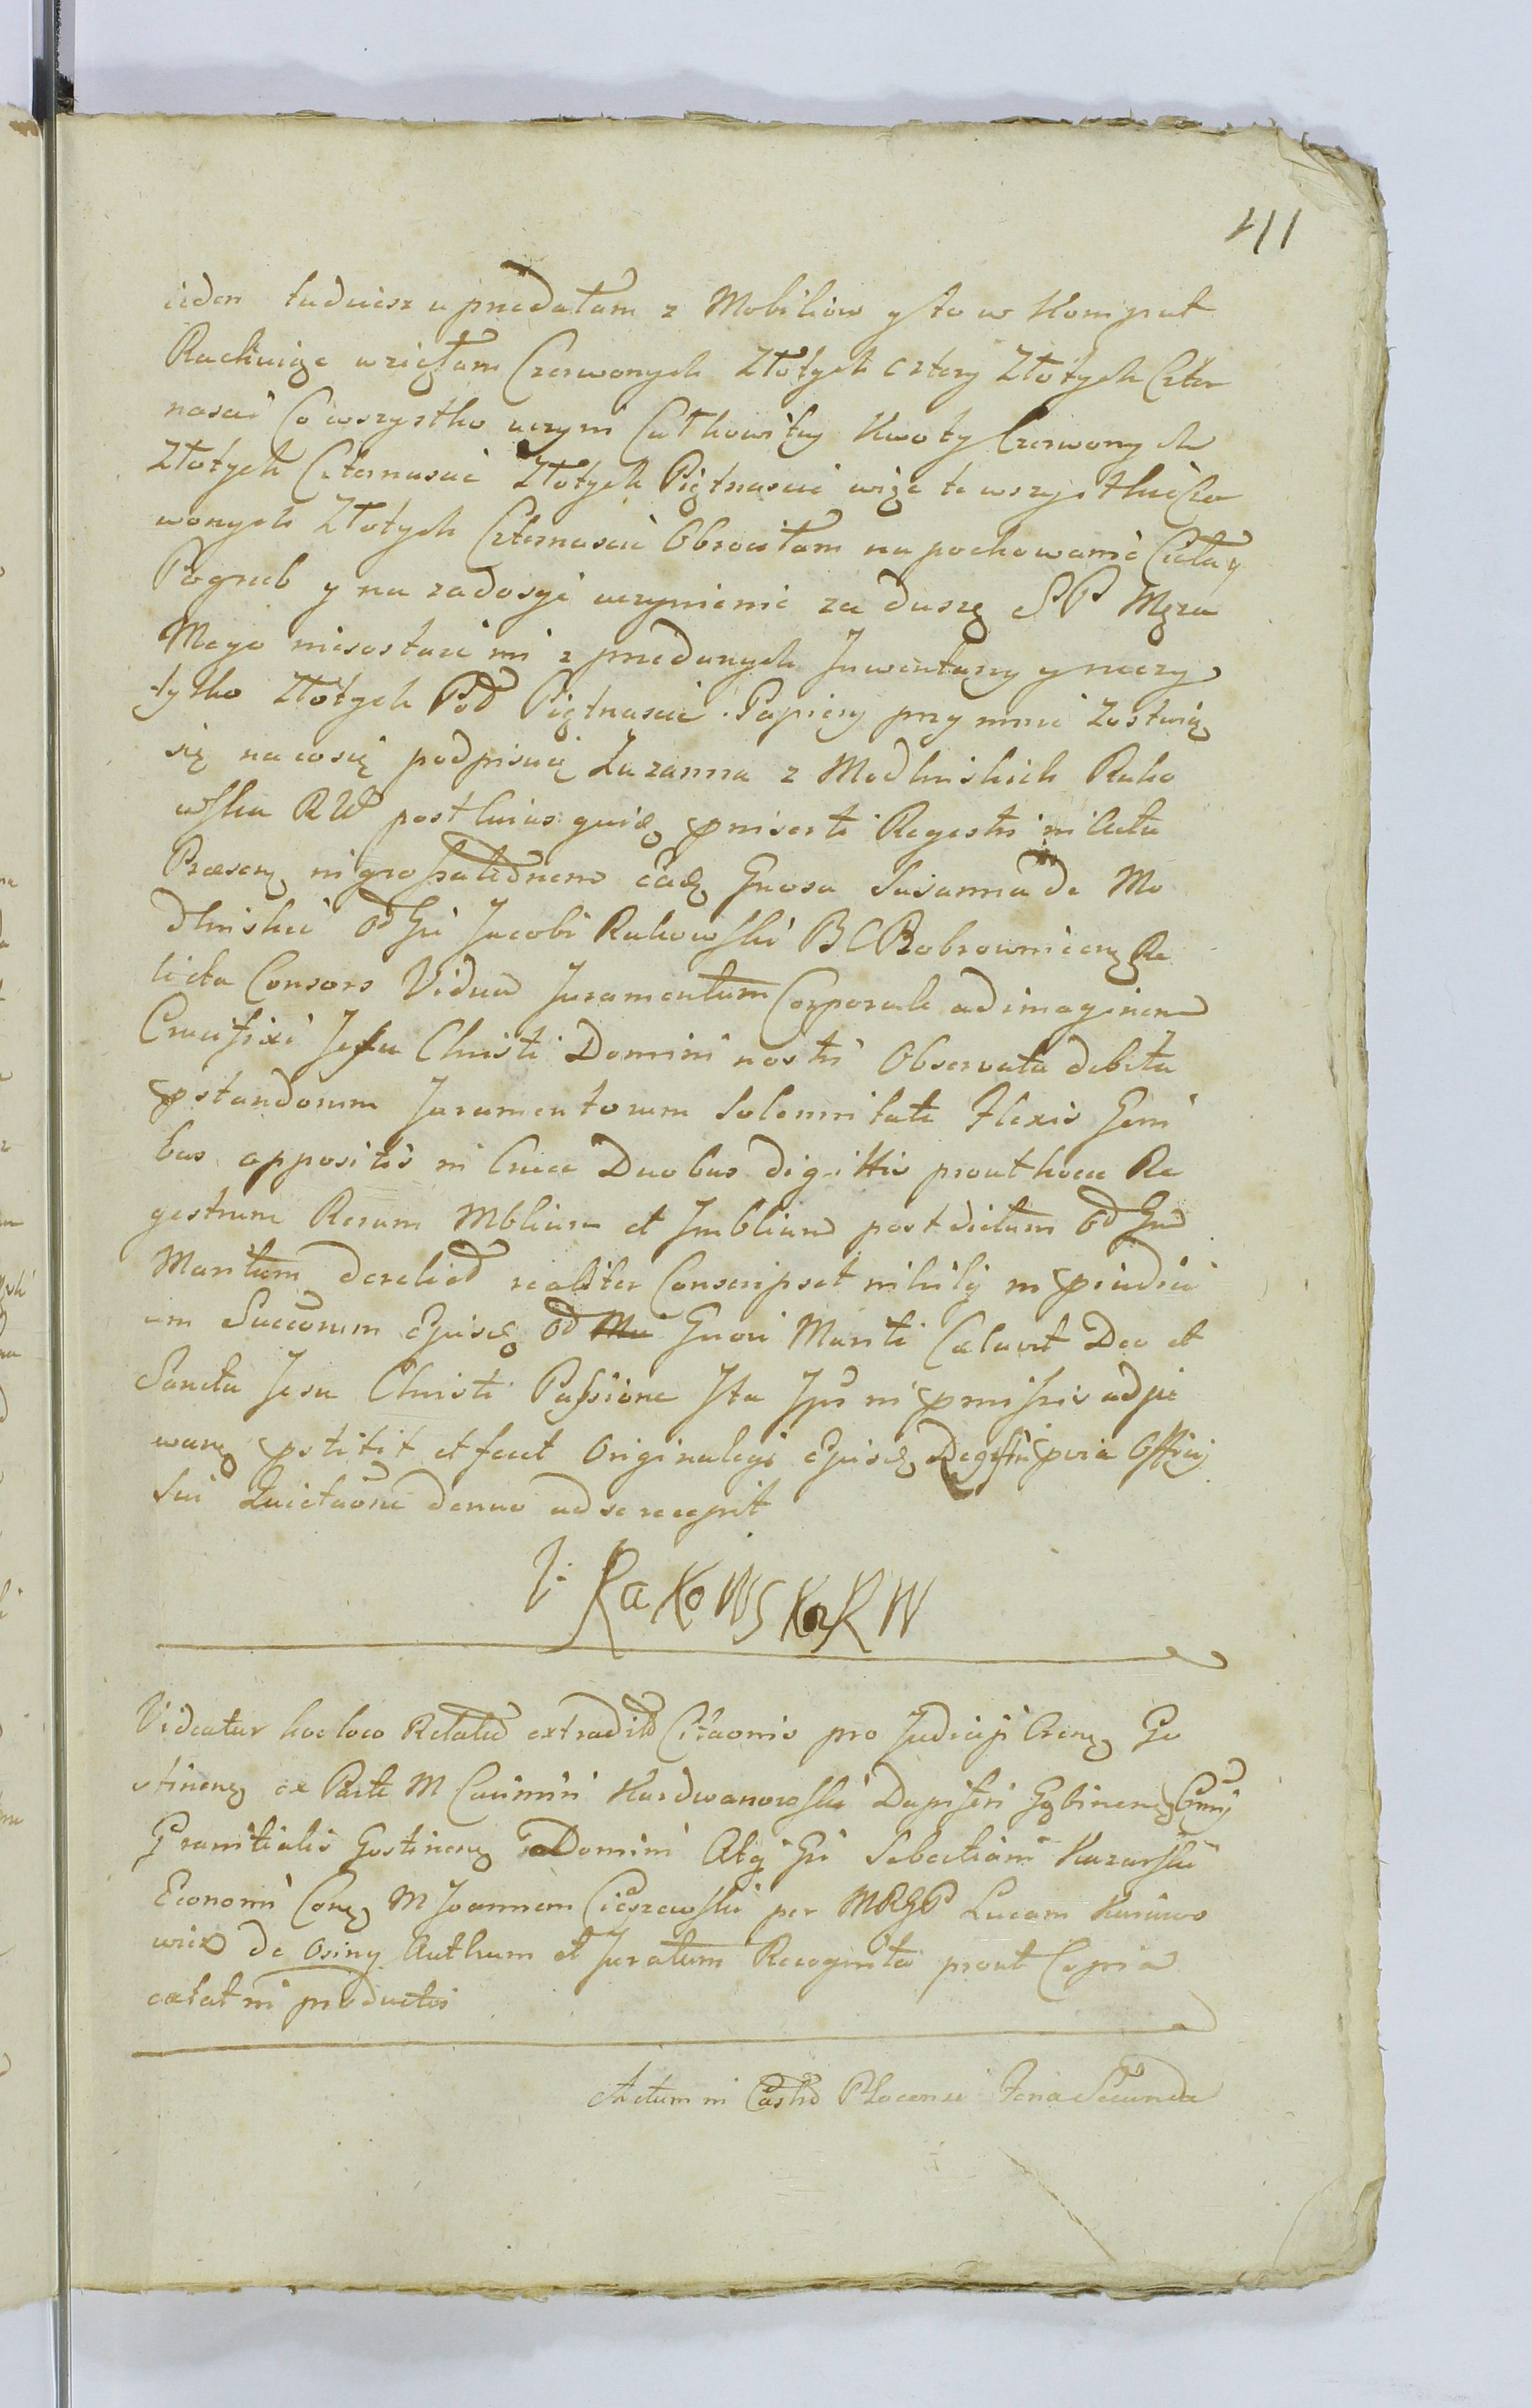 411
ieden tudziesz uprzedałam z Mobiliow y to w Komput
Rachuiąc wzięłam Czerwonych Złotych cztery Złotych Czter
nascie Co wszystko uczyni Całkowitey Kwoty Czerwonych
Złotych Czternascie Złotych Piętnascie więc te wszystkie Czer
wonych Złotych Czternascie Obrociłam na pochowanie Ciała y
Pogrzeb y na zadosyć uczynienie za duszę SP Męza
Mego niezostaie mi z przedanych Inwentarzy y rzeczy
tylko Złotych Pol Piętnascie. Papiery przy mnie Zostaią
się na co się podpisuię Zuzanna z Modlinskich Rako
wska RW post cuius quid prinserti Regestri in Acta
Praesen ingrossationem ead Gnosa Susanna de Mo
dlinskie od Gsi Jacobi Rakowski BC Bobrownicen Re
licta Consors Vidua Juramentum Corporale ad imaginem
Crucifixi Jesu Christi Domini nostri Observata debita
pstandorum Juramentorum Solemnitate Flexis Geni
bus appositis in Cruce Duobus digittis prout hocce Re
gestrum Rerum Mblium et Imblium post dictum od Gnd
Maritum derelict realiter Conscripsit nihilq in priudici
um Succorum Ejusd od Gnosi Mariti Celavit Deo et
Sancta Jesu Christi Passione Ita Ips in pmissis adju
van pstitit et fecit Originaleqe Ejusd Regestri pvia Officij
Sui Quietaone denuo ad se recepit
Z: RaKoWSKa RW
Videatur hocloco Relatio extradit Citaonis pro Judicijs Cren Go
stinen ex Parte M Casimiri Kardwanowski Dapiferi Gąbinen
Granitialis Gostinen Domini Atq Gsi Sebastiani Kazarski
Economi Con M Joannem Cieszewski per MRGP Lucam
de Osiny Authum et Juratum Recognita prout Copia
extat in productis
Actum in Castro Plocensi Feria Secunda